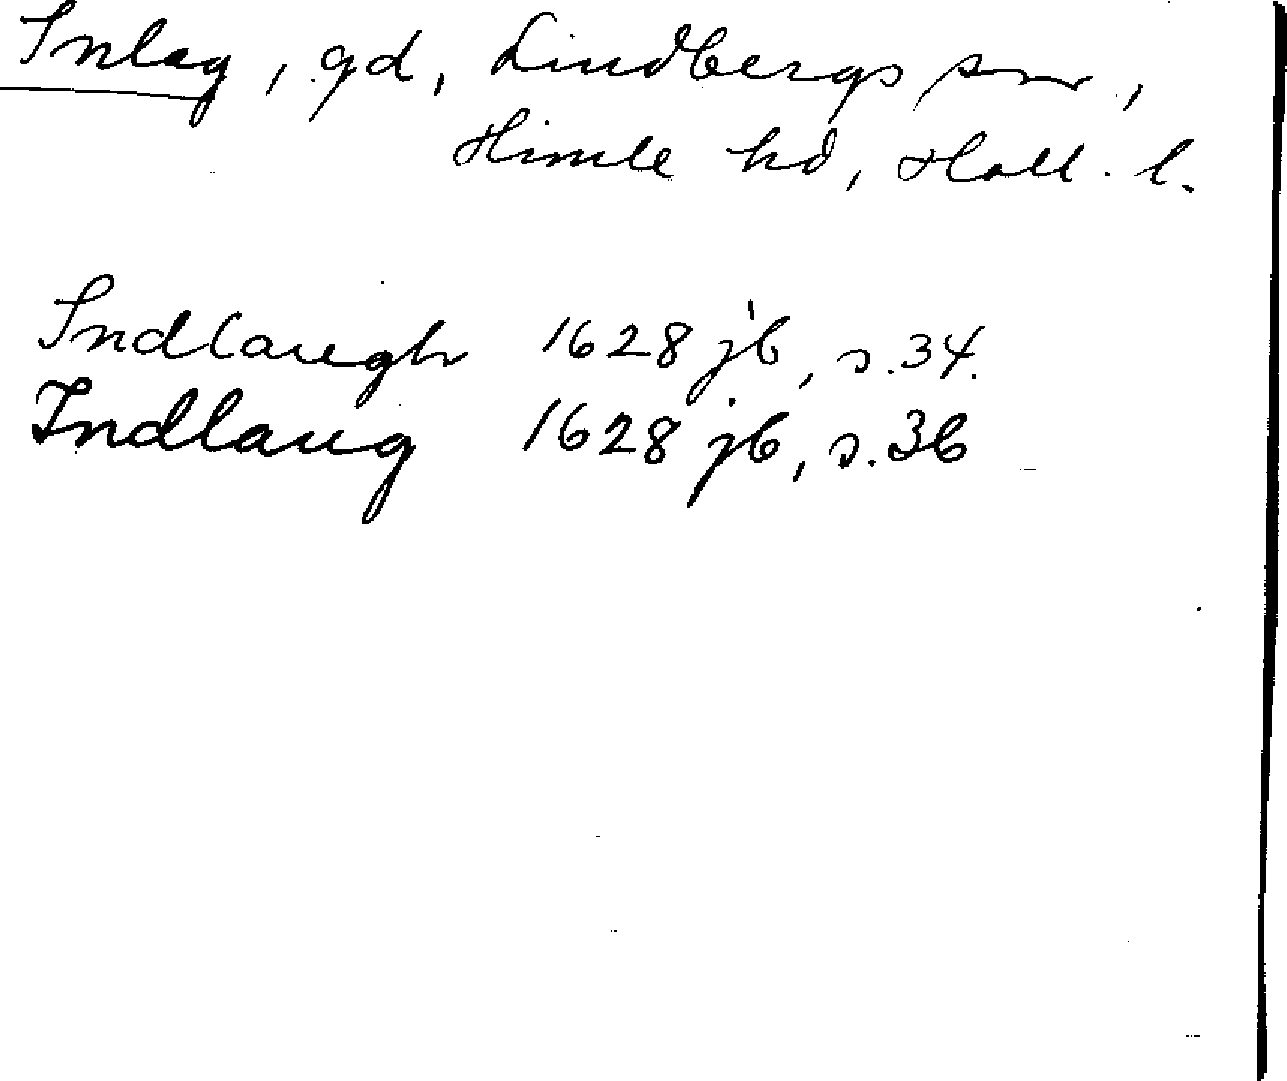 Inlag, gd, Lindbergs sn,
Himle hd, Hall. l.
Indlaugh 1628 jb, s. 34.
Indlaug 1628 jb, s. 36